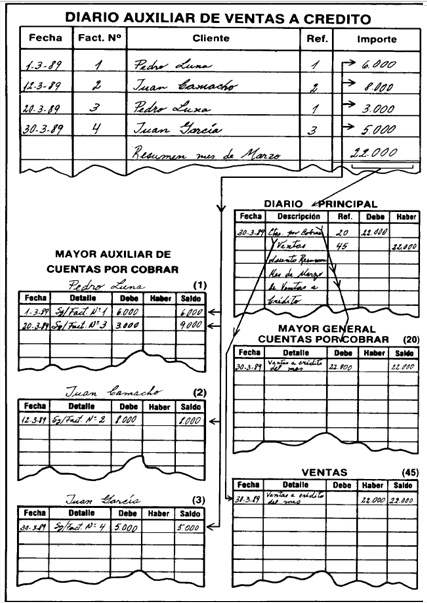 DIARIO AUXILIAR DE VENTAS A CREDITO
Fecha Fact. Nº Cliente Ref. Importe
1-3-89 1 Pedro Luna 1 6.000
12.3-89 2 Juan Camacho 2 8.000
20.3-89 3 Pedro Luna 1 3.000
30.3-89 4 Juan García 3 5.000
Resumen mes de Marzo 22.000
DIARIO PRINCIPAL
Fecha Descripción Ref. Debe Haber
30-3.89 Ctas. por Cobrar 20 22.000
Ventas 45 22.000
Asiento Resumen
Mes de Marzo
de Ventas a
Crédito
MAYOR AUXILIAR DE
CUENTAS POR COBRAR
Pedro Luna (1)
Fecha Detalle Debe Haber Saldo
1-3-89 Sg/Fact Nº 1 6.000 6.000
20.3-89 Sg/Fact Nº 3 3.000 9.000
Juan Camacho (2)
Fecha Detalle Debe Haber Saldo
12-3-89 Sg/Fact. Nº 2 8.000 8.000
Juan García (3)
Fecha Detalle Debe Haber Saldo
30-3-89 Sg/Fact Nº 4 5.000 5.000
MAYOR GENERAL
CUENTAS POR COBRAR (20)
Fecha Detalle Debe Haber Saldo
30-3-89 Ventas a crédito 22.000 22.000
del mes
VENTAS (45)
Fecha Detalle Debe Haber Saldo
30-3-89 Ventas a crédito 22.000 22.000
del mes